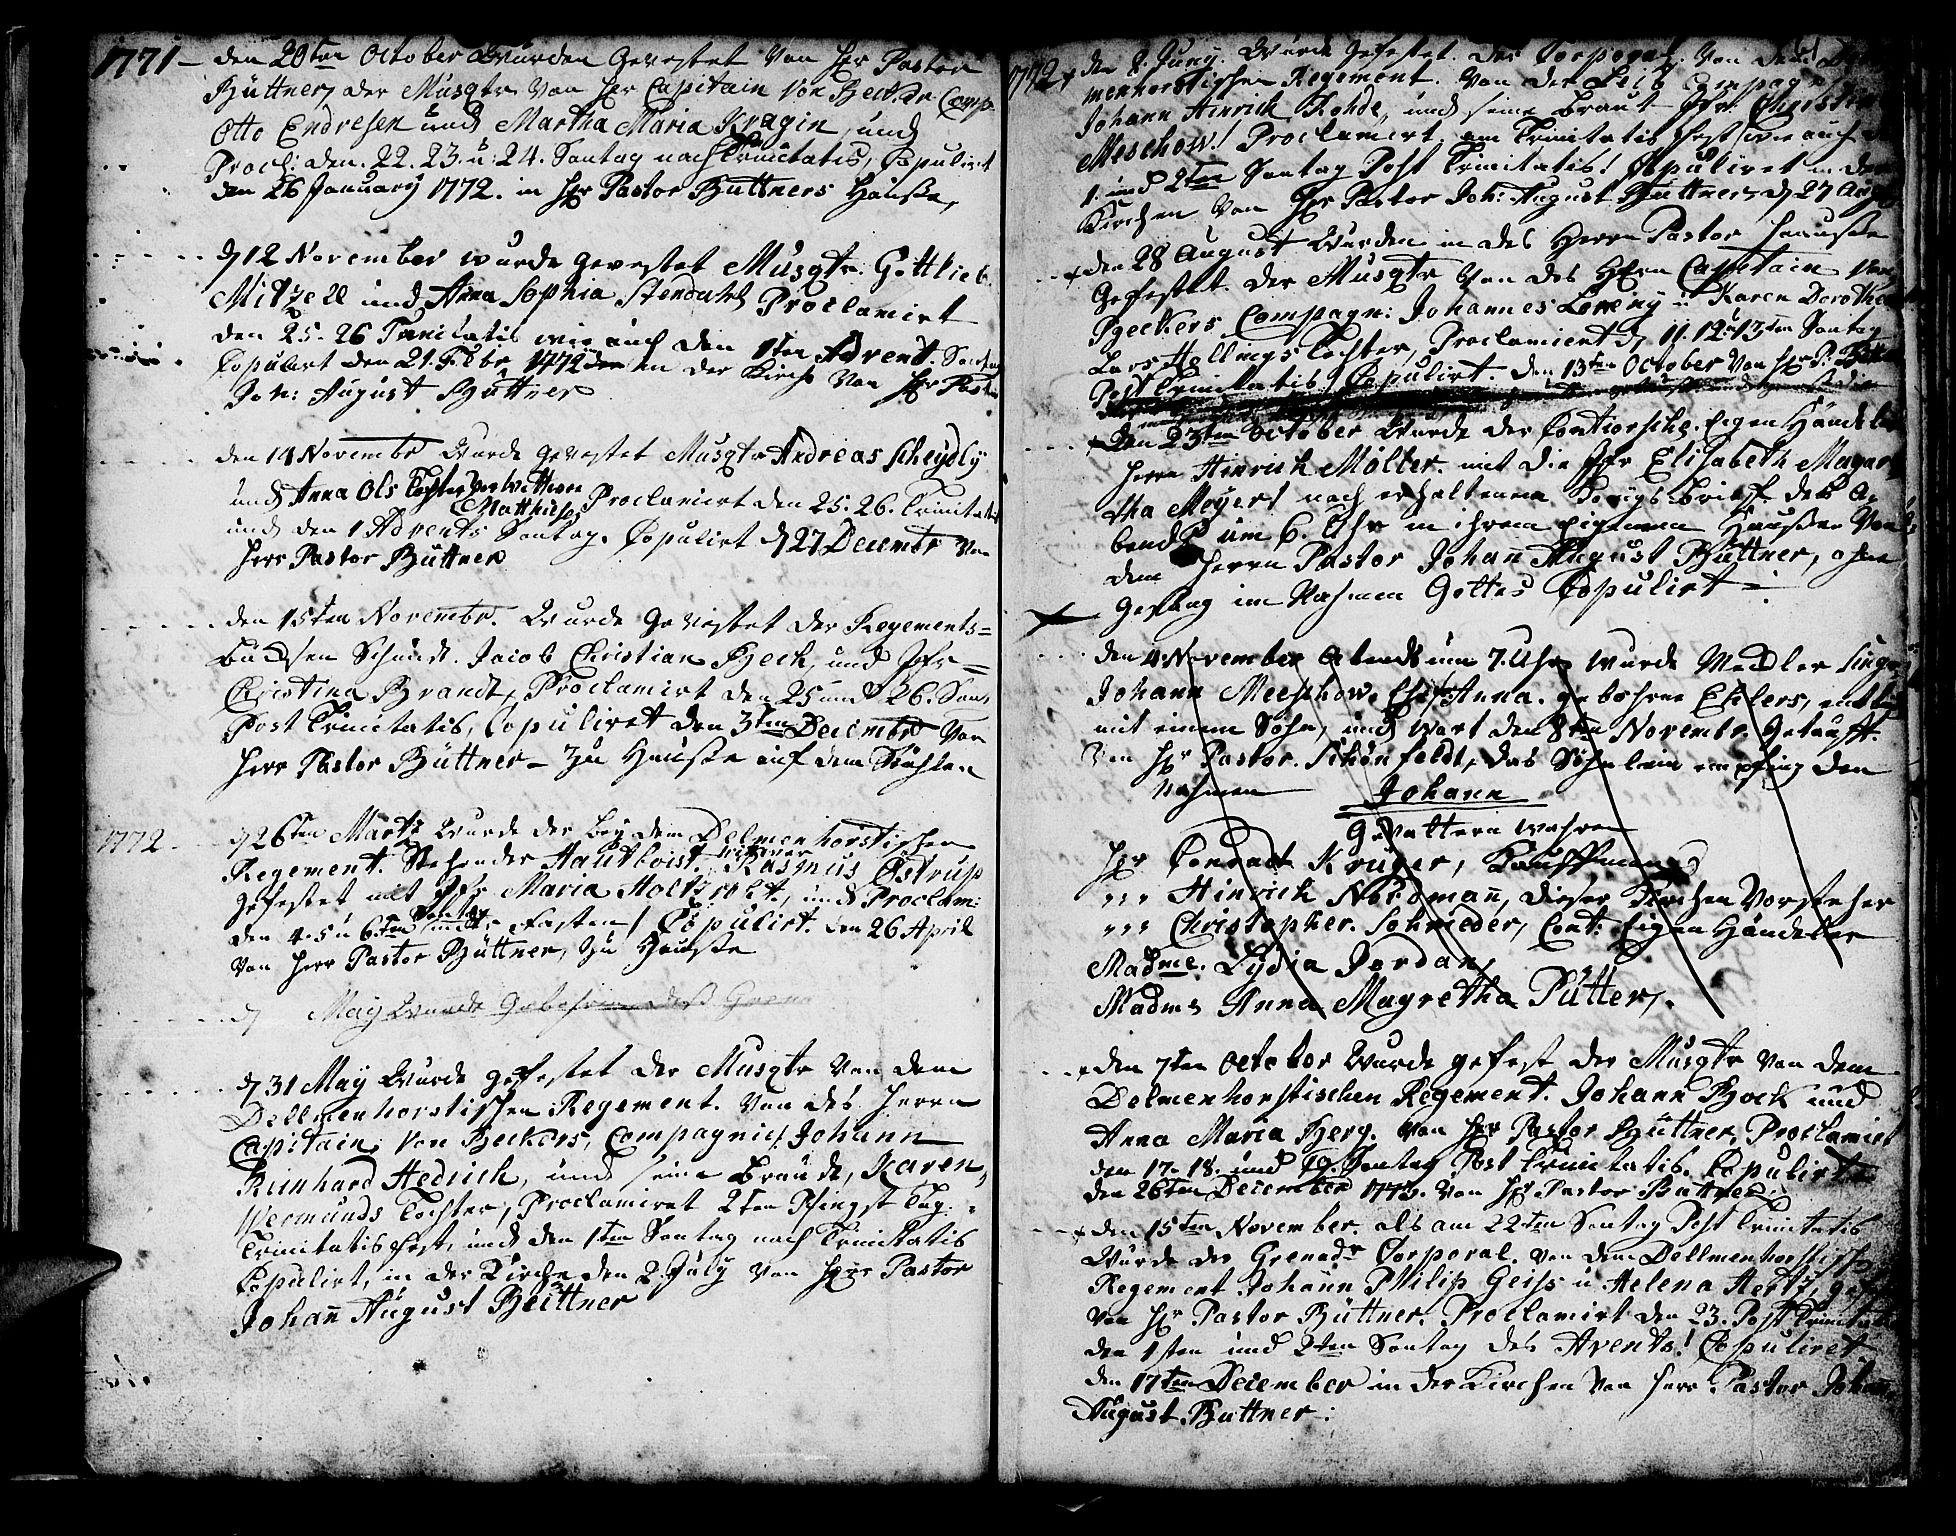 1771 – den 20ten October Wurden Gevestet Von Hr Pastor
Büttner, der Musqtr Von Hr Capitain Von Becker Comp
Otto Endresen und Martha Maria Kragin, und
Procl: den 22. 23. u: 24. Sontag nach Trinitatis, Copulirt
den 26 January 1772. in Hr Pastor Büttners Hausse,
d 12 November wurde gevestet Musqtr: Gottlieb
Mitzell und Anna Sophia Stendahls Proclamirt
den 25. 26 Trinitatis wie auch den 1ten Advent. Sontag
Copulirt den 21. Febr 1772 in der Kirche Von Hr Pastor
Joh: August Büttner
den 14 Novembr Wurde gevestet Musqtr Andreas Scheydly
und Anna Ols Tochter
Matthies Proclamirt den 25. 26. Trinitatis
und den 1 Advents Sontag. Copulirt d 27 Decembr Von
Herr Pastor Büttner
den 15ten Novembr. Wurde Gevestet der Regements=
Büchsen Schmidt. Jacob Christian Beck, und Jfr=
Christina Brandt, Proclamirt den 25 und 26. Son,
Post Trinitatis, Copuliret den 3ten Decembr Von
Herr Pastor Büttner – Zu Hausse auf dem
1772. d 26ten Martz Wurde der bey dem Delmenhorstischen
Regement. Stehender Hautboist. Rasmus Østrup
gefestet mit Jfr Maria Holtz, und Proclam:
den 4. 5 u 6ten Sontag Fasten / Copulirt. den 26 April
Von Herr Pastor Büttner, zu Hausse
d May Wurde Gebohren des Grena
d 31 May Wurde gefestet der Musqtr Von dem
Dellmenhorstischen Regement. Von des Herrn
Capitain, Von Beckers, Compagnie / Johann
Reinhard Hedrich, und seine Braude, Karen,
Wermunds Tochter, Proclamiret 2ten Pfingst Tag,
Trinitatis fest, und den 1ten Sontag nach Trinitatis
Copulirt, in der Kirche den 2. July Von Herr Pastor
Johan August Büttner
61
1772 den 8. Juny. Wurde gefestet. der Corporal. Von dem Del
menhorstischen Regement. Von der Leib Compagnie
Johann Hinrich Rohde, und seine Braut Jfr. Christina
Meschow! Proclamirt, am Trinitatis fest wie auch den
1. und 2ten Sontag Post Trinitatis! Copuliret in der
Kirchen Von Hr Pastor Joh: August Büttner, d 27 August
den 28 August Wurden in des Herrn Pastor Hausse
Gefestet. der Musqtr Von des Hern Capitain Von
Beckers Compagn: Johannes Loreny u: Karen Dorothea
Lars Tochter, Proclamiert d, 11. 12. u 13ten Sontag
Post Trinitatis / Copulirt. den 13ten October Von Hr P: Büttner
den 23ten October Wurde der Contiorsche. Eigen Händeler
Herrn Hinrich Mölter. mit die Jfr Elisabeth Magare
tha Meyers nach erhaltenen Königs Brieff des A=
bends um 6. Uhr in ihrem Eigenen Hausse Von
dem Herrn Pastor Johan August Büttner, ohne
Gesang im Nahmen Gottes Copulirt –
den 4 November Abends um 7. Uhr wurde Medler
Johann Meeschow. Anna. gebohrne Ehlers,
mit einem Sohn, und Wart den 8ten Novembr Getaufft.
Von Hr Pastor. Schönfeldt, das Söhnlein empfing den
Nahmen Johann
Gevattern wahren
Hr Conradt Krüger, Kauffmann
,,, Hinrich Nordmañ, dieser Kirchen Vorsteher
,,, Christopher. Schrieder, Cont: Eigen Händeler
Madme. Lydia Jordan,
Madme Anna Magretha Pütter,.
den 7ten October Wurde gefest der Musqtr Von dem
Delmenhorstischen Regement. Johann Bock und
Anna Maria Berg. Von Hr Pastor Büttner, Proclamirt
den 17. 18. und 19. Sontag Post Trinitatis. Copulirt
den 26ten December 1772. Von Hr Pastor Büttner
den 15ten November. als am 22ten Sontag Post Trinitatis
Wurde der Grenadr Corporal. Von dem Dellmenhorstischen
Regement Johann Philip Geiss u Helena Hertz,
Von Hr Pastor Büttner. Proclamirt den 23. Post Trinitatis
den 1sten und 2ten Sontag des Avents! Copuliret
den 17ten December in der Kirchen Von Herr Pastor Johan
August. Büttner: